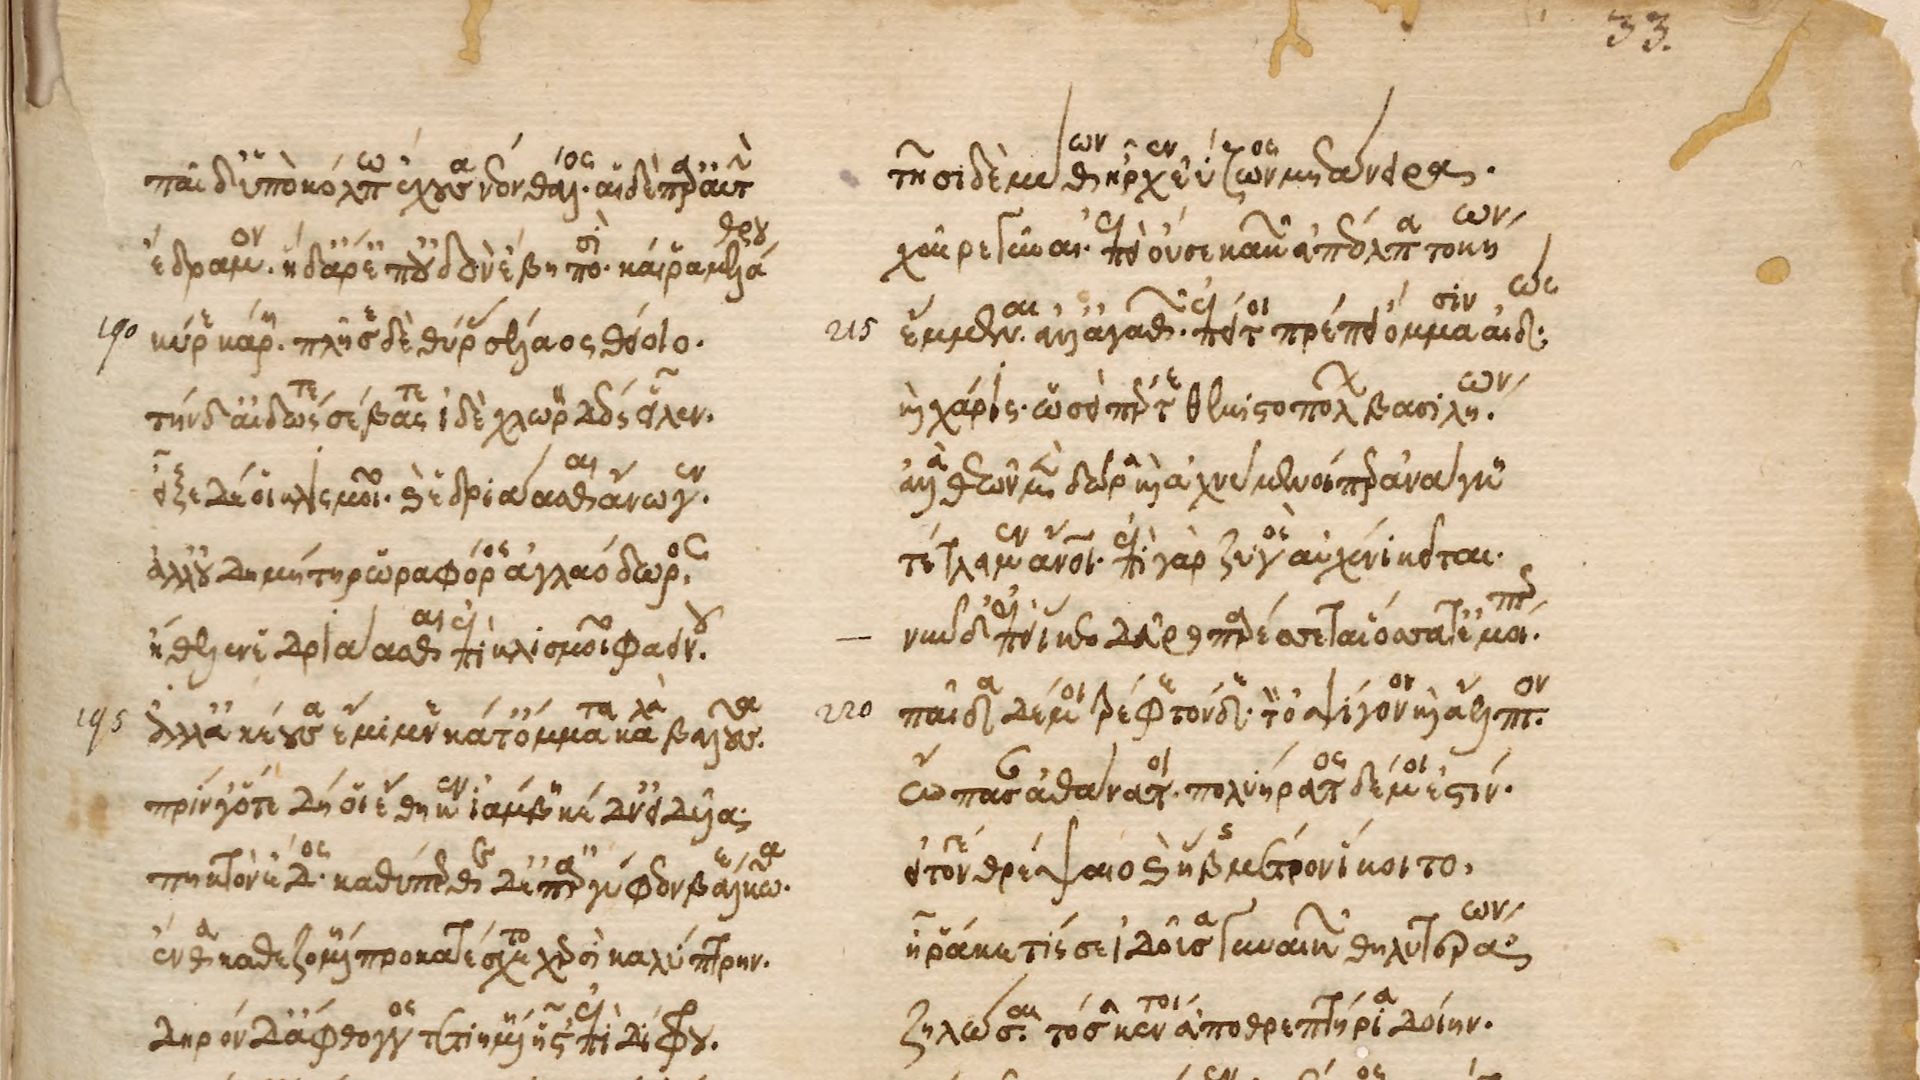 33.
παῖδ' ὑπὸ κόλπω ἔχουσα νέον θάλος· αἱ δὲ παρ' αὐτὴν
ἔδραμον. ἡ δ' ἄρ' ἐπ' οὐδὸν ἔβη ποσὶ· καί ῥα μελάθρου
190 κῦρε κάρη. πλῆσεν δὲ θύρας σέλαος θείοιο.
τὴν δ' αἰδώς τε σέβας τε ἰδὲ χλωρὸν δέος εἷλεν.
εἶξε δέ οἱ κλισμοῖο· καὶ ἑδριάασθαι ἄνωγεν.
ἀλλ' οὐ δημήτηρ ὡραφόρος ἀγλαόδωρος,
ἤθελεν ἑδριάασθαι ἐπὶ κλισμοῖο φαεινοῦ.
195 ἀλλ' ἀκέουσα ἔμιμνε κατ' ὄμματα καλὰ βαλοῦσα.
πρίν γ' ὅτε δή οἱ ἔθηκεν ἰάμβη κέδν' εἰδυῖα·
πηκτὸν ἕδος· καθύπερθε δ' ἐπ' ἀργύφεον βάλε κῶας.
ἔνθα καθεζομένη προκατέσχετο χερσὶ καλύπτρην.
δηρὸν δ' ἄφθογγος τετιημένη ἧστ' ἐπὶ δίφρου.
τῆσι δὲ μύθων ἦρχεν ἐΰζωνος μετάνειρα.
χαῖρε γύναι. ἐπεὶ οὔ σε κακῶν ἄπ' ἔολπα τοκήων
215 ἔμμεναι. ἀλλ' ἀγαθῶν. ἐπεί τοι πρέπει ὄμμασιν αἰδώς·
καὶ χάρις. ὡς εἴ πέρ τε θεμιστοπόλων βασιλήων.
ἀλλὰ θεῶν μὲν δῶρα καὶ ἀχνύμενοί περ ἀνάγκη
τέτλαμεν ἄνθρωποι. ἐπὶ γὰρ ζυγὸς αὐχένι κεῖται.
νῦν δ' ἐπεὶ ἵκεο δεῦρο παρέσσεται ὅσσα τ' ἐμοί περ.
220 παῖδα δέ μοι τρέφε τόνδε. τὸν ὀψίγονον καὶ ἄελπτον.
ὤπασαν ἀθάνατοι. πολυήρατος δέ μοί ἐστιν.
εἰ τόν γε θρέψαιο καὶ ἥβης μέτρον ἵκοιτο,
ἦ ῥά κέ τίς σε ἰδοῦσα γυναικῶν θηλυτεράων
ζηλώσαι. τόσα κέν τοι ἀπὸ θρεπτήρια δοίην.